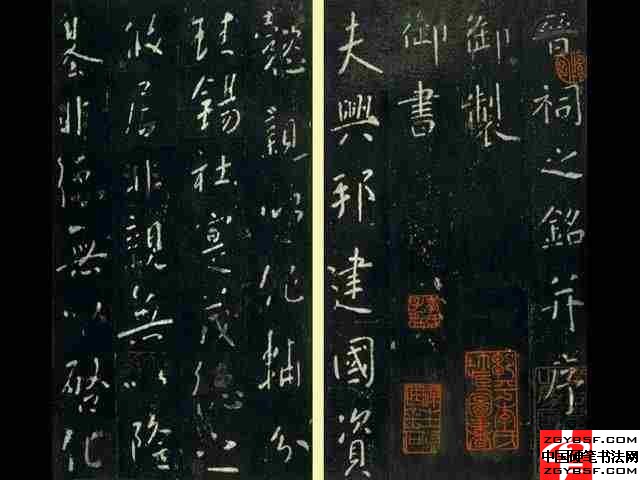 晉祠之銘并序
御製
御書
夫興邦建國資
懿親以作輔分
珪錫社寔茂德之
攸居非親無以隆
基非德無以啓化
ZGYBSF.COM
中国硬笔书法网
ZGYBSF.COM